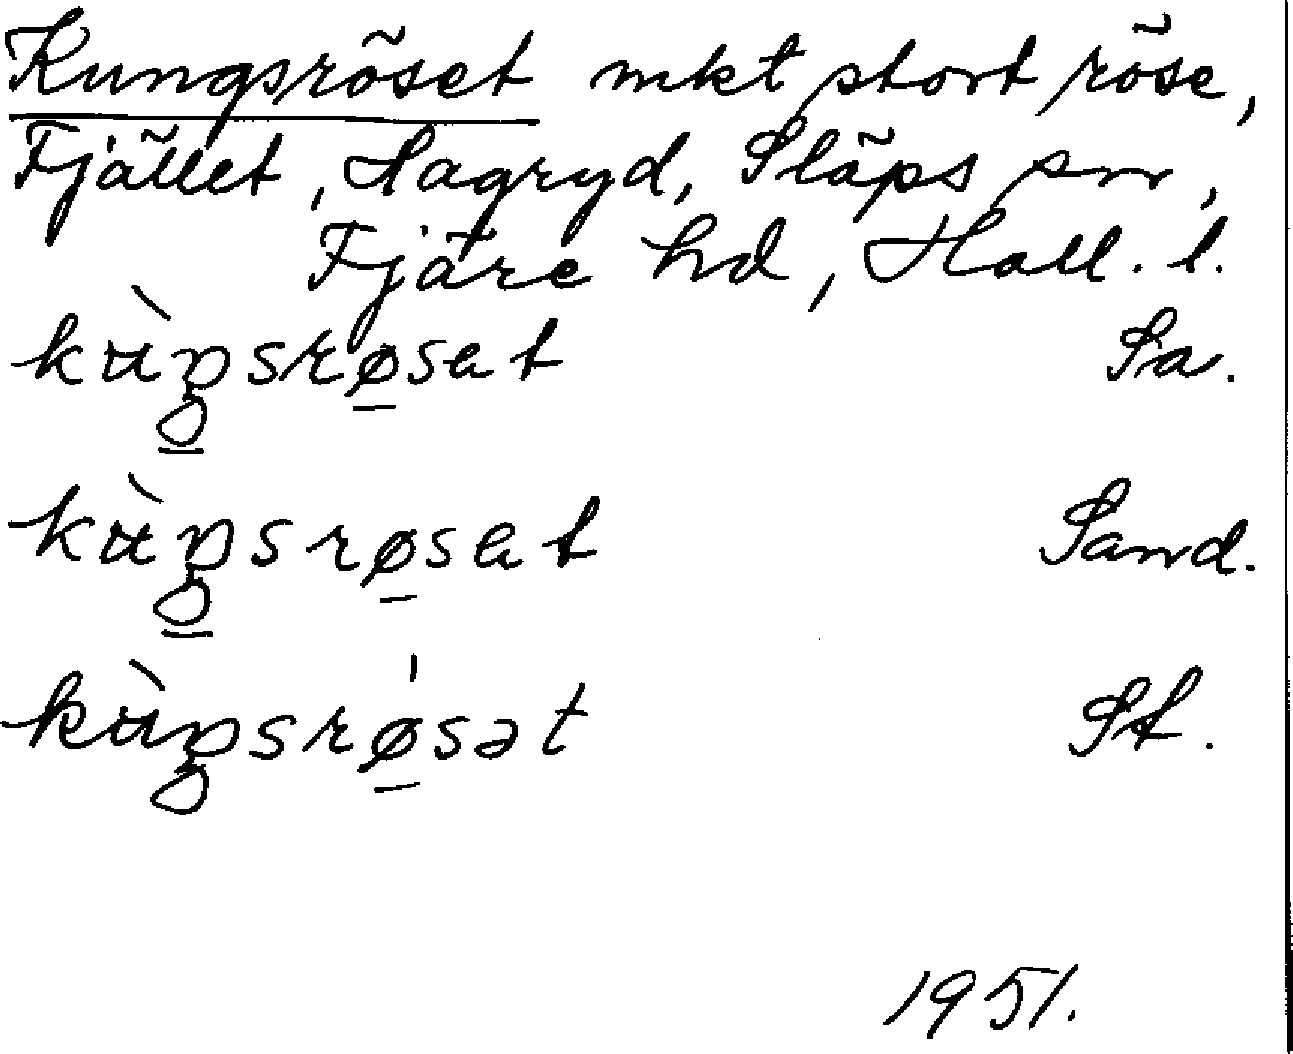 Kungsröset mkt stort röse,
Fjället, Hagryd, Släps sn,
Fjäre hd, Hall. l.
kùŋsrøsat Sa.
kùŋsrøsat Sand.
kùŋsrø'sət St.
1951.